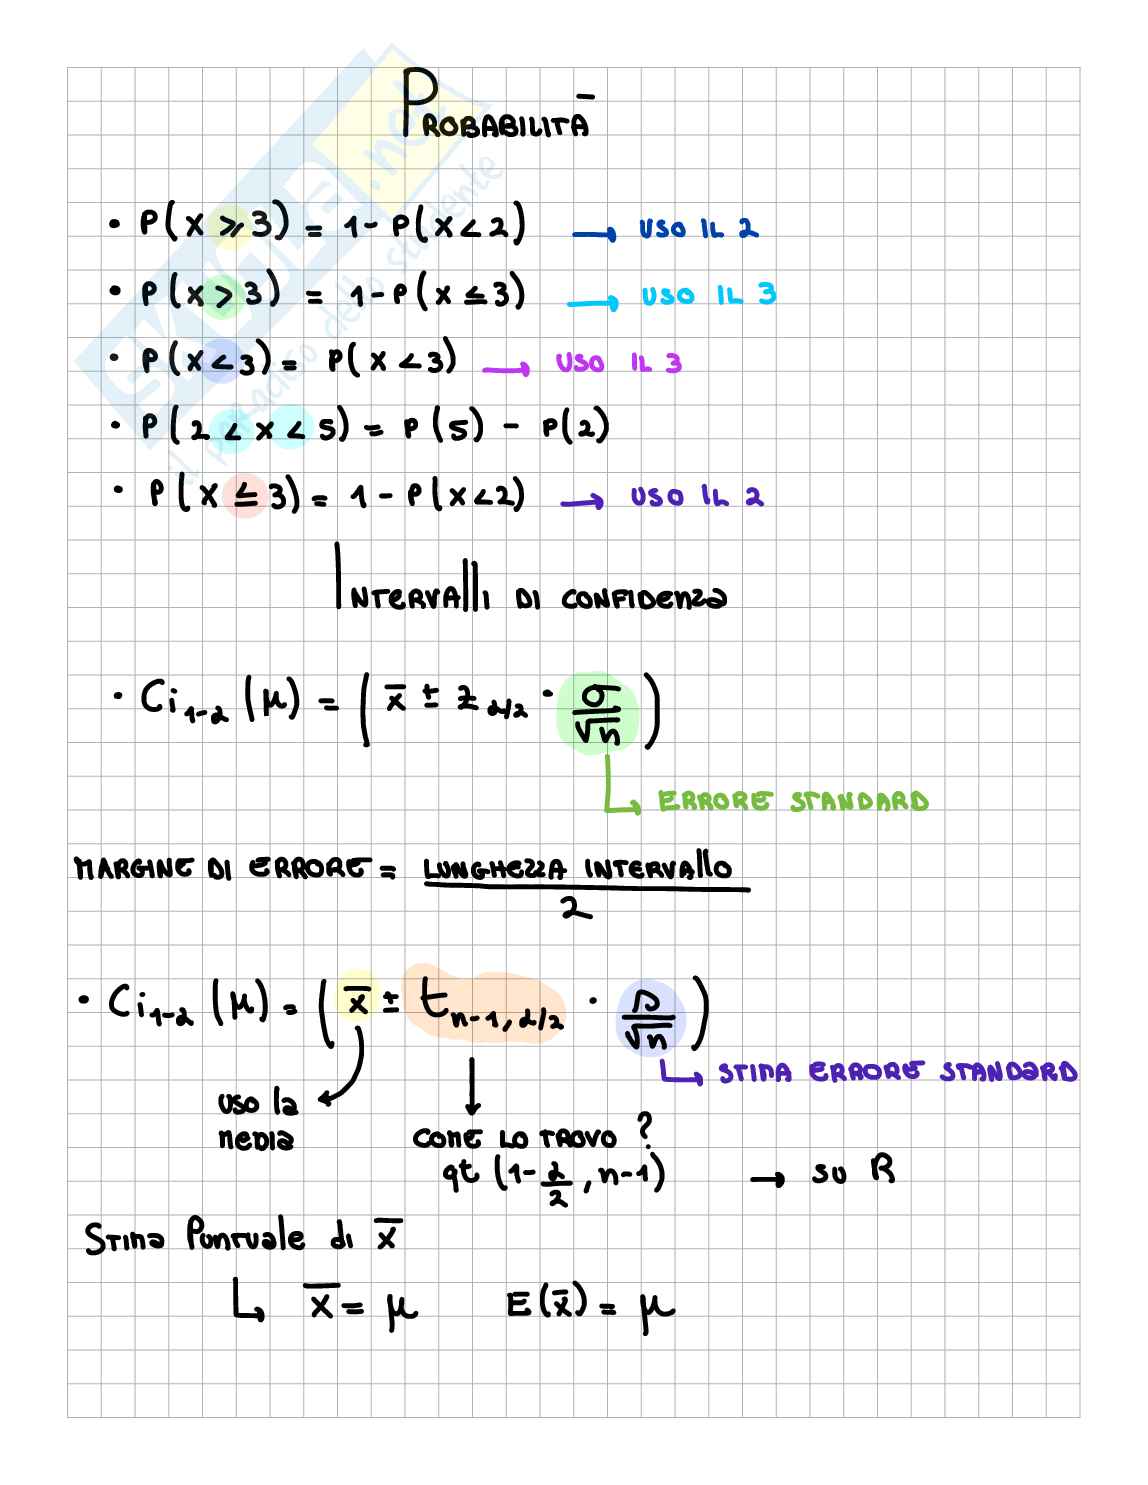 PROBABILITÀ
• P(x ⩾ 3) = 1 - P(x < 2) → USO IL 2
• P(x > 3) = 1 - P(x ≤ 3) → USO IL 3
• P(x < 3) = P(x < 3) → USO IL 3
• P(2 < x < 5) = P(5) - P(2)
• P(x ≤ 3) = 1 - P(x < 2) → USO IL 2
INTERVALLI DI CONFIDENZA
• Ci₁₋α (μ) = ( x̄ ± z α/2 · σ/√n )
↳ ERRORE STANDARD
MARGINE DI ERRORE = LUNGHEZZA INTERVALLO / 2
• Ci₁₋α (μ) = ( x̄ ± t n-1, α/2 · s/√n )
↳ STIMA ERRORE STANDARD
USO LA MEDIA
COME LO TROVO ?
qt (1 - α/2 , n-1) → SU R
STIMA PUNTUALE di x̄
↳ x̄ = μ E(x̄) = μ
SKUOLA.net
il paradiso dello studente